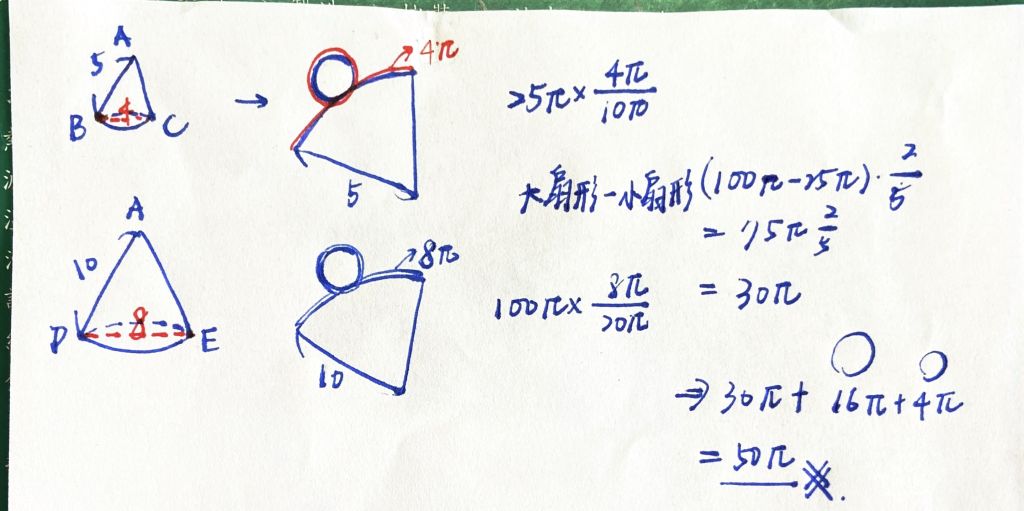 A
5
B
4
C
→
4π
5
25π × 4π/10π
大扇形-小扇形(100π-25π)·2/5
= 75π 2/5
A
10
D
8
E
8π
10
100π × 8π/20π
= 30π
⇒ 30π + 16π + 4π
= 50π